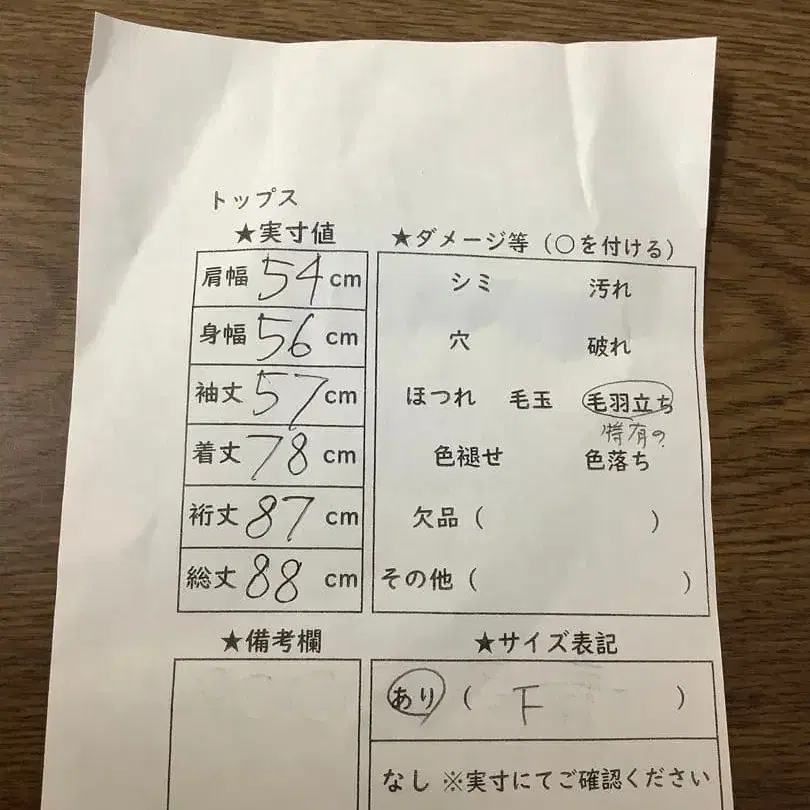 トップス
★実寸値
肩幅 54 cm
身幅 56 cm
袖丈 57 cm
着丈 78 cm
裄丈 87 cm
総丈 88 cm
★ダメージ等（○を付ける）
シミ 汚れ
穴 破れ
ほつれ 毛玉 毛羽立ち
特有の
色褪せ 色落ち
欠品（ ）
その他（ ）
★備考欄
★サイズ表記
あり（ F ）
なし ※実寸にてご確認ください